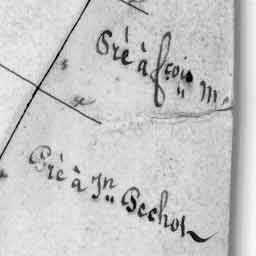 Pré à fçois M
Pré à Jn Bechot